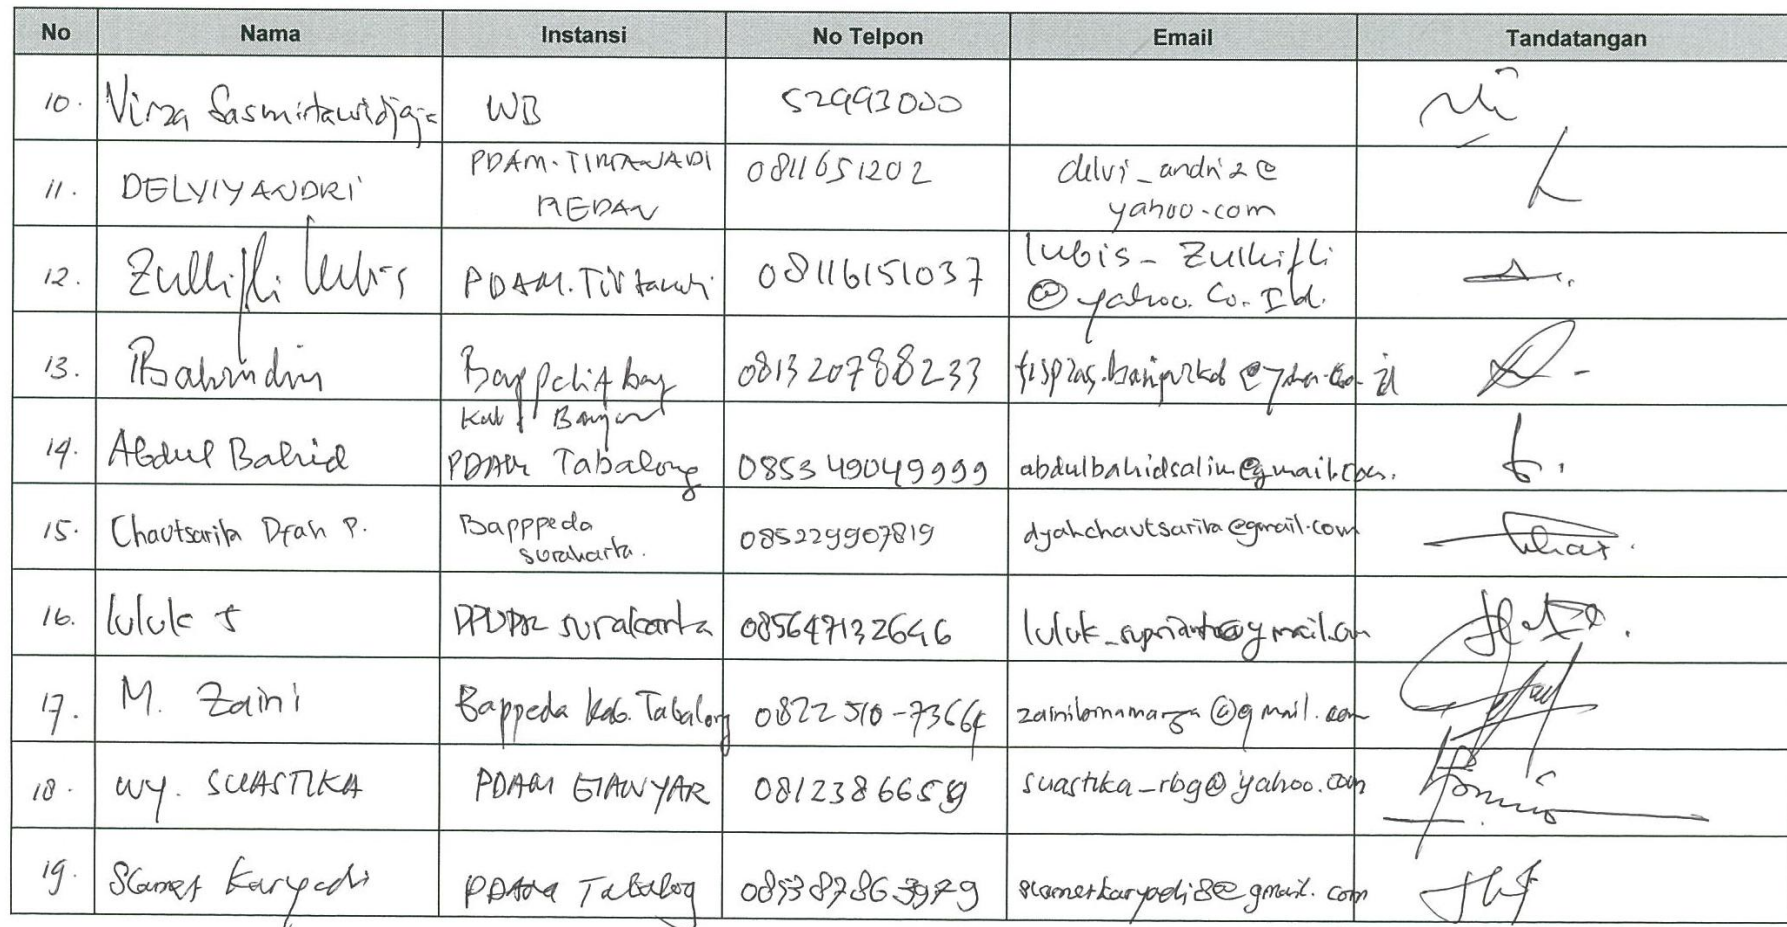 No Nama Instansi No Telpon Email Tandatangan
10. Virza Sasmitawidjaja WB 52993000
11. DELVIYANDRI PDAM. TIRTANADI MEDAN 0811651202 delvi_andri2@ yahoo.com
12. Zulkifli Lubis PDAM. Tirtanadi 08116151037 lubis_Zulkifli @yahoo.Co.Id.
13. Bahrudin Kab Banjar 081320788233
14. Abdul Bahid PDAM Tabalong 085349049999 abdulbahidsalim@gmail.com.
15. Chautsarita Dyah P. Bapppeda surakarta. 085229907819 dyahchautsarita@gmail.com
16. luluk s DPUPR surakarta 085647132646 luluk_suprianto@gmail.com
17. M. Zaini Bappeda Kab. Tabalong 0822 510-73664 @gmail.com
18. WY. SUASTIKA PDAM GIANYAR 08123866559 suastika_rbg@yahoo.com
19. Slamet Karyadi PDAM Tabalog 085387863979 slametkaryadi8@gmail.com